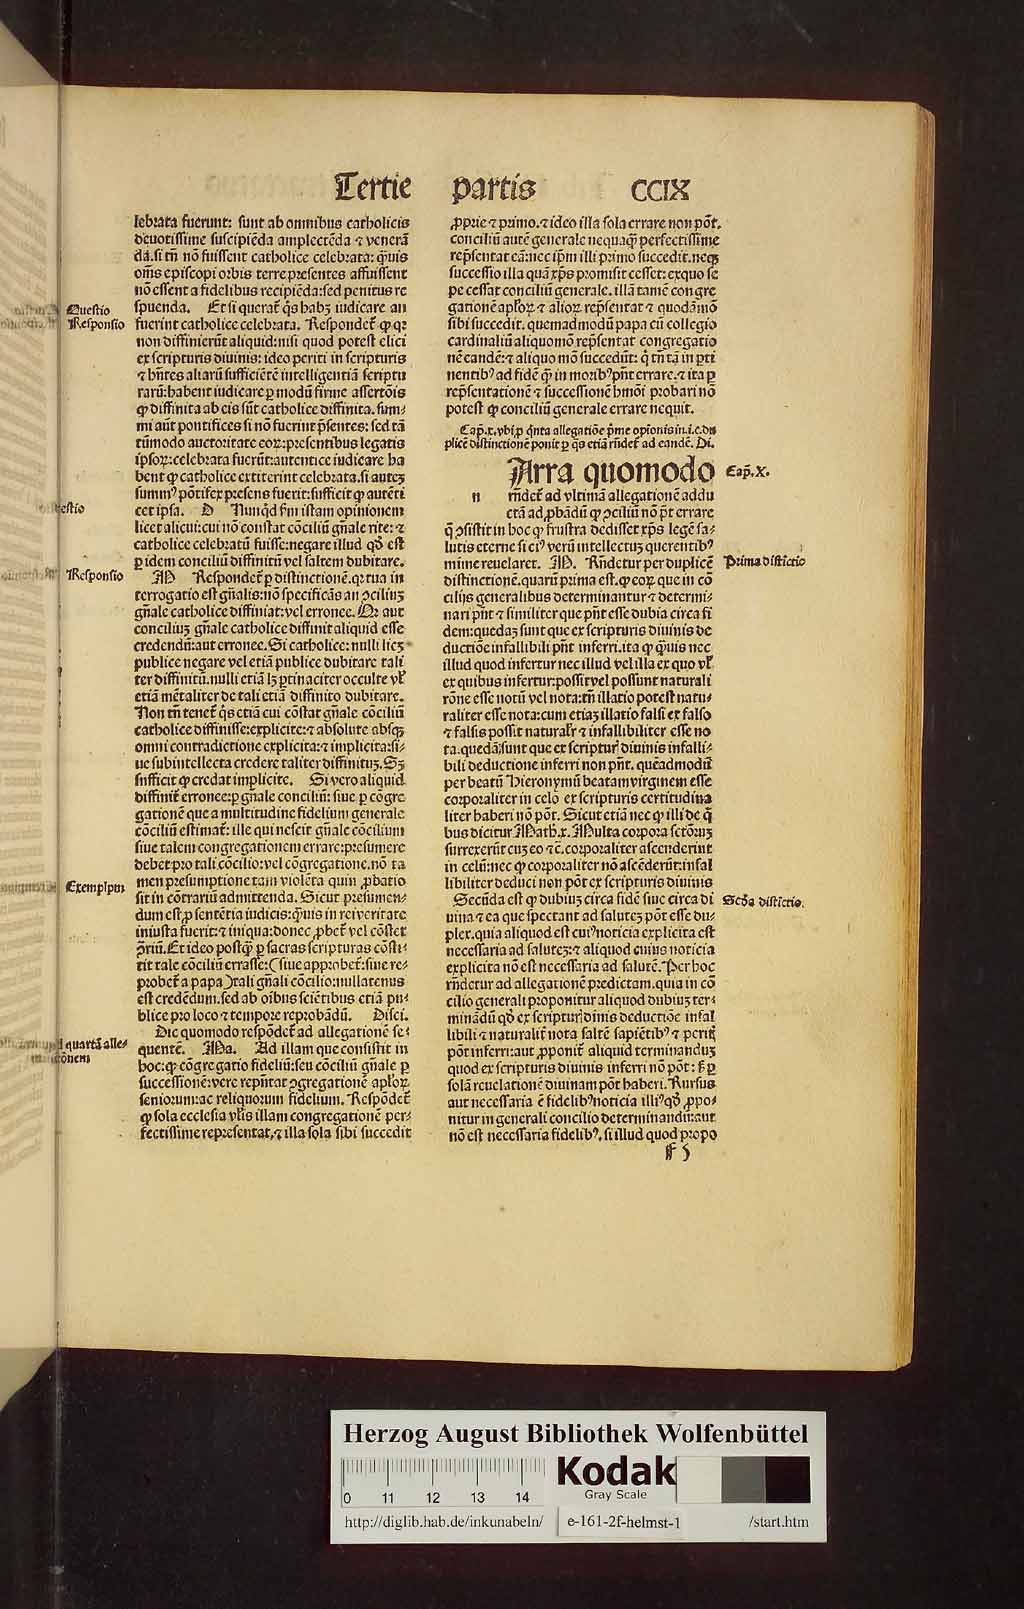 Tertie partis CCIX
lebrata fuerunt: sunt ab omnibus catholicis
deuotissime suscipiēda amplectēda ⁊ venerā
da. si tn̄ nō fuissent catholice celebrata: q̄uis
om̄s episcopi orbis terre presentes affuissent
nō essent a fidelibus recipiēda: sed penitus re
spuenda. Et si querat᷑ q̄s habꝫ iudicare an
fuerint catholice celebrata. Respondet᷑ ꝙ qꝛ
non diffinierūt aliquid: nisi quod potest elici
ex scripturis diuinis: ideo periti in scripturis
⁊ hn̄tes aliarū sufficiētē intelligentiā scriptu
rarū: habent iudicare ꝑ modū firme assertōis
ꝙ diffinita ab eis sūt catholice diffinita. sum⸗
mi aūt pontifices si nō fuerint p̄sentes: sed tā
tūmodo auctoritate eoꝝ: presentibus legatis
ipsoꝝ: celebrata fuerūt: autentice iudicare ha
bent ꝙ catholice extiterint celebrata. si autez
summꝰ pōtifex presens fuerit: sufficit ꝙ autēti
cet ipsa. D Nunqd̄ fm̄ istam opinionem
licet alicui: cui nō constat cōciliū gn̄ale rite: ⁊
catholice celebratū fuisse: negare illud qd̄ est
ꝑ idem conciliū diffinitū vel saltem dubitare.
M Respondet᷑ ꝑ distinctionē. qꝛ tua in
terrogatio est gn̄alis: nō specificās an ꝯciliuꝫ
gn̄ale catholice diffiniat: vel erronee. Qꝛ aut
conciliuꝫ gn̄ale catholice diffinit aliquid esse
credendū: aut erronee. Si catholice: nulli licꝫ
publice negare vel etiā publice dubitare tali
ter diffinitū. nulli etiā lꝫ ꝑtinaciter occulte vl̓
etiā mētaliter de tali etiā diffinito dubitare.
Non tn̄ tenet᷑ q̄s etiā cui cōstat gn̄ale cōciliū
catholice diffinisse: explicite: ⁊ absolute absqꝫ
omni contradictione explicita: ⁊ implicita: si⸗
ue subintellecta credere taliter diffinituꝫ. Sꝫ
sufficit ꝙ credat implicite. Si vero aliquid
diffinit᷑ erronee: ꝑ gn̄ale conciliū: siue ꝑ cōgre
gationē que a multitudine fidelium generale
cōciliū estimat᷑: ille qui nescit gn̄ale cōcilium
siue talem congregationem errare: presumere
debet pro tali cōcilio: vel cōgregatione. nō ta
men presumptione tam violēta quin ꝓbatio
sit in cōtrariū admittenda. Sicut presumen⸗
dum est ꝓ sentētia iudicis: q̄uis in rei veritate
iniusta fuerit: ⁊ iniqua: donec ꝓbet᷑ vel cōstet
ꝯrriū. Et ideo postq̄ ꝑ sacras scripturas cōsti⸗
tit tale cōciliū errasse: (siue approbet᷑: siue re⸗
probet᷑ a papa) tali gn̄ali cōcilio: nullatenus
est credēdum. sed ab oībus sciētibus etiā pu⸗
blice pro loco ⁊ tempore reprobādū. Disci.
Dic quomodo respōdet᷑ ad allegationē se⸗
quentē. Ma. Ad illam que consistit in
hoc: ꝙ cōgregatio fideliū: seu cōciliū gn̄ale ꝑ
successionē: vere repn̄tat ꝯgregationē apl̓oꝝ
seniorum: ac reliquorum fidelium. Respōdet᷑
ꝙ sola ecclesia vl̓is illam congregationē per⸗
fectissime representat, ⁊ illa sola sibi succedit
Questio
Responsio
estio
Responsio
Exemplum
d quartā alle⸗
ꝓprie ⁊ primo. ⁊ ideo illa sola errare non pōt.
conciliū autē generale nequaq̄ perfectissime
rep̄sentat eā: nec ip̄m illi primo succedit. neqꝫ
successio illa quā xp̄s promisit cesset: ex quo se
pe cessat conciliū generale. illā tamē congre
gationē apl̓oꝝ ⁊ alioꝝ rep̄sentat ⁊ quodāmō
sibi succedit. quemadmodū papa cū collegio
cardinaliū aliquomō rep̄sentat congregatio
nē eandē: ⁊ aliquo mō succedūt: q̄ tn̄ tā in ꝑti
nentibꝰ ad fidē q̄ in moribꝰ pn̄t errare. ⁊ ita ꝑ
rep̄sentationē ⁊ successionē hmōi probari nō
potest ꝙ conciliū generale errare nequit.
Cap̄. x. vbi ꝑ qn̄ta allegatiōe p̄me opiōnis in. i. c. du
plicē distinctionē ponit ꝑ q̄s etiā rn̄det᷑ ad eandē. Di.
Arra quomodo
n rn̄det᷑ ad vltimā allegationē addu
ctā ad ꝓbādū ꝙ ꝯciliū nō p̄t errare
q̄ ꝯsistit in hoc ꝙ frustra dedisset xp̄s legē sa⸗
lutis eterne si eiꝰ verū intellectuꝫ querentibꝰ
mime reuelaret. M. Rn̄detur per duplicē
distinctionē. quarū prima est. ꝙ eoꝝ que in cō
cilijs generalibus determinantur ⁊ determi⸗
nari pn̄t ⁊ similiter que pn̄t esse dubia circa fi
dem: quedaꝫ sunt que ex scripturis diuinis de
ductiōe infallibili pn̄t inferri. ita ꝙ q̄uis nec
illud quod infertur nec illud vel illa ex quo vl̓
ex quibus infertur: possit vel possunt naturali
rōne esse notū vel nota: tn̄ illatio potest natu⸗
raliter esse nota: cum etiaꝫ illatio falsi ex falso
⁊ falsis possit natural̓r ⁊ infallibiliter esse no
ta. quedā sunt que ex scripturꝭ diuinis infalli⸗
bili deductione inferri non pn̄t. quēadmodū
per beatū Hieronymū beatam virginem esse
corporaliter in celo ex scripturis certitudina
liter haberi nō pōt. Sicut etiā nec ꝙ illi de q̄
bus dicitur Math̄. x. Multa corpora sctōruꝫ
surrexerūt cuꝫ eo ⁊c. corporaliter ascenderint
in celū: nec ꝙ corporaliter nō ascēderūt: infal
libiliter deduci non pōt ex scripturis diuinis
Secūda est ꝙ dubiuꝫ circa fidē siue circa di
uina ⁊ ea que spectant ad salutez pōt esse du⸗
plex. quia aliquod est cuiꝰ noticia explicita est
necessaria ad salutez: ⁊ aliquod cuius noticia
explicita nō est necessaria ad salutē. Per hoc
rn̄detur ad allegationē predictam. quia in cō
cilio generali proponitur aliquod dubiuꝫ ter⸗
minādū qd̄ ex scripturꝭ diuinis deductiōe infal
libili ⁊ naturalit᷑ nota saltē sapiētibꝰ ⁊ peritꝭ
pōt inferri: aut ꝓponit᷑ aliquid terminanduꝫ
quod ex scripturis diuinis inferri nō pōt: sꝫ ꝑ
solā reuelationē diuinam pōt haberi. Rursus
aut necessaria ē fidelibꝰ noticia illiꝰ qd̄ ꝓpo⸗
nitur in generali concilio determinandū: aut
nō est necessaria fidelibꝰ. si illud quod propo
ff 5
Cap̄. X.
Prima distīctio
Scd̄a distīctio.
Herzog August Bibliothek Wolfenbüttel
0 11 12 13 14
Kodak
Gray Scale
http://diglib.hab.de/inkunabeln/ e-161-2f-helmst-1 /start.htm